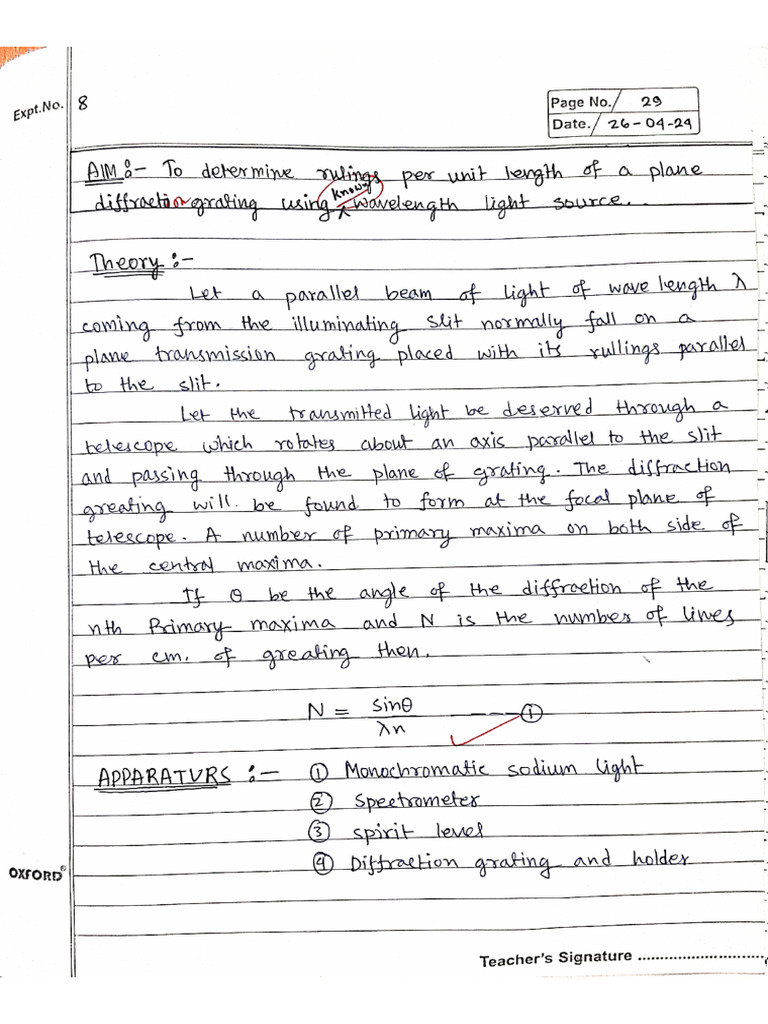 Expt.No. 8
Page No. 29
Date. 26-04-24
AIM :- To determine rulings per unit length of a plane
diffraction grating using known wavelength light source..
Theory :-
Let a parallel beam of light of wave length λ
coming from the illuminating slit normally fall on a
plane transmission grating placed with its rullings parallel
to the slit.
Let the transmitted light be deserved through a
telescope which rotates about an axis parallel to the slit
and passing through the plane of grating. The diffraction
greating will be found to form at the focal plane of
telescope. A number of primary maxima on both side of
the central maxima.
If θ be the angle of the diffraction of the
nth Primary maxima and N is the number of lines
per cm. of greating then.
N = sinθ / λn ---- ①
APPARATURS :- ① Monochromatic sodium light
② Spectrometer
③ spirit level
④ Diffraction grating and holder
OXFORD®
Teacher's Signature ............................